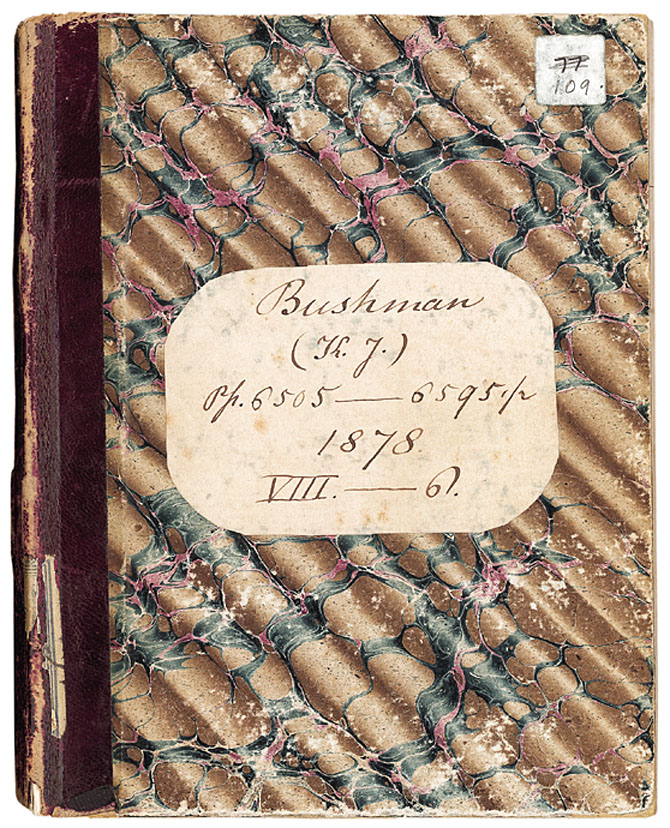 77
109.
Bushman
(K. J.)
Pp. 6505 — 6595 1/2
1878
VIII. — 6.